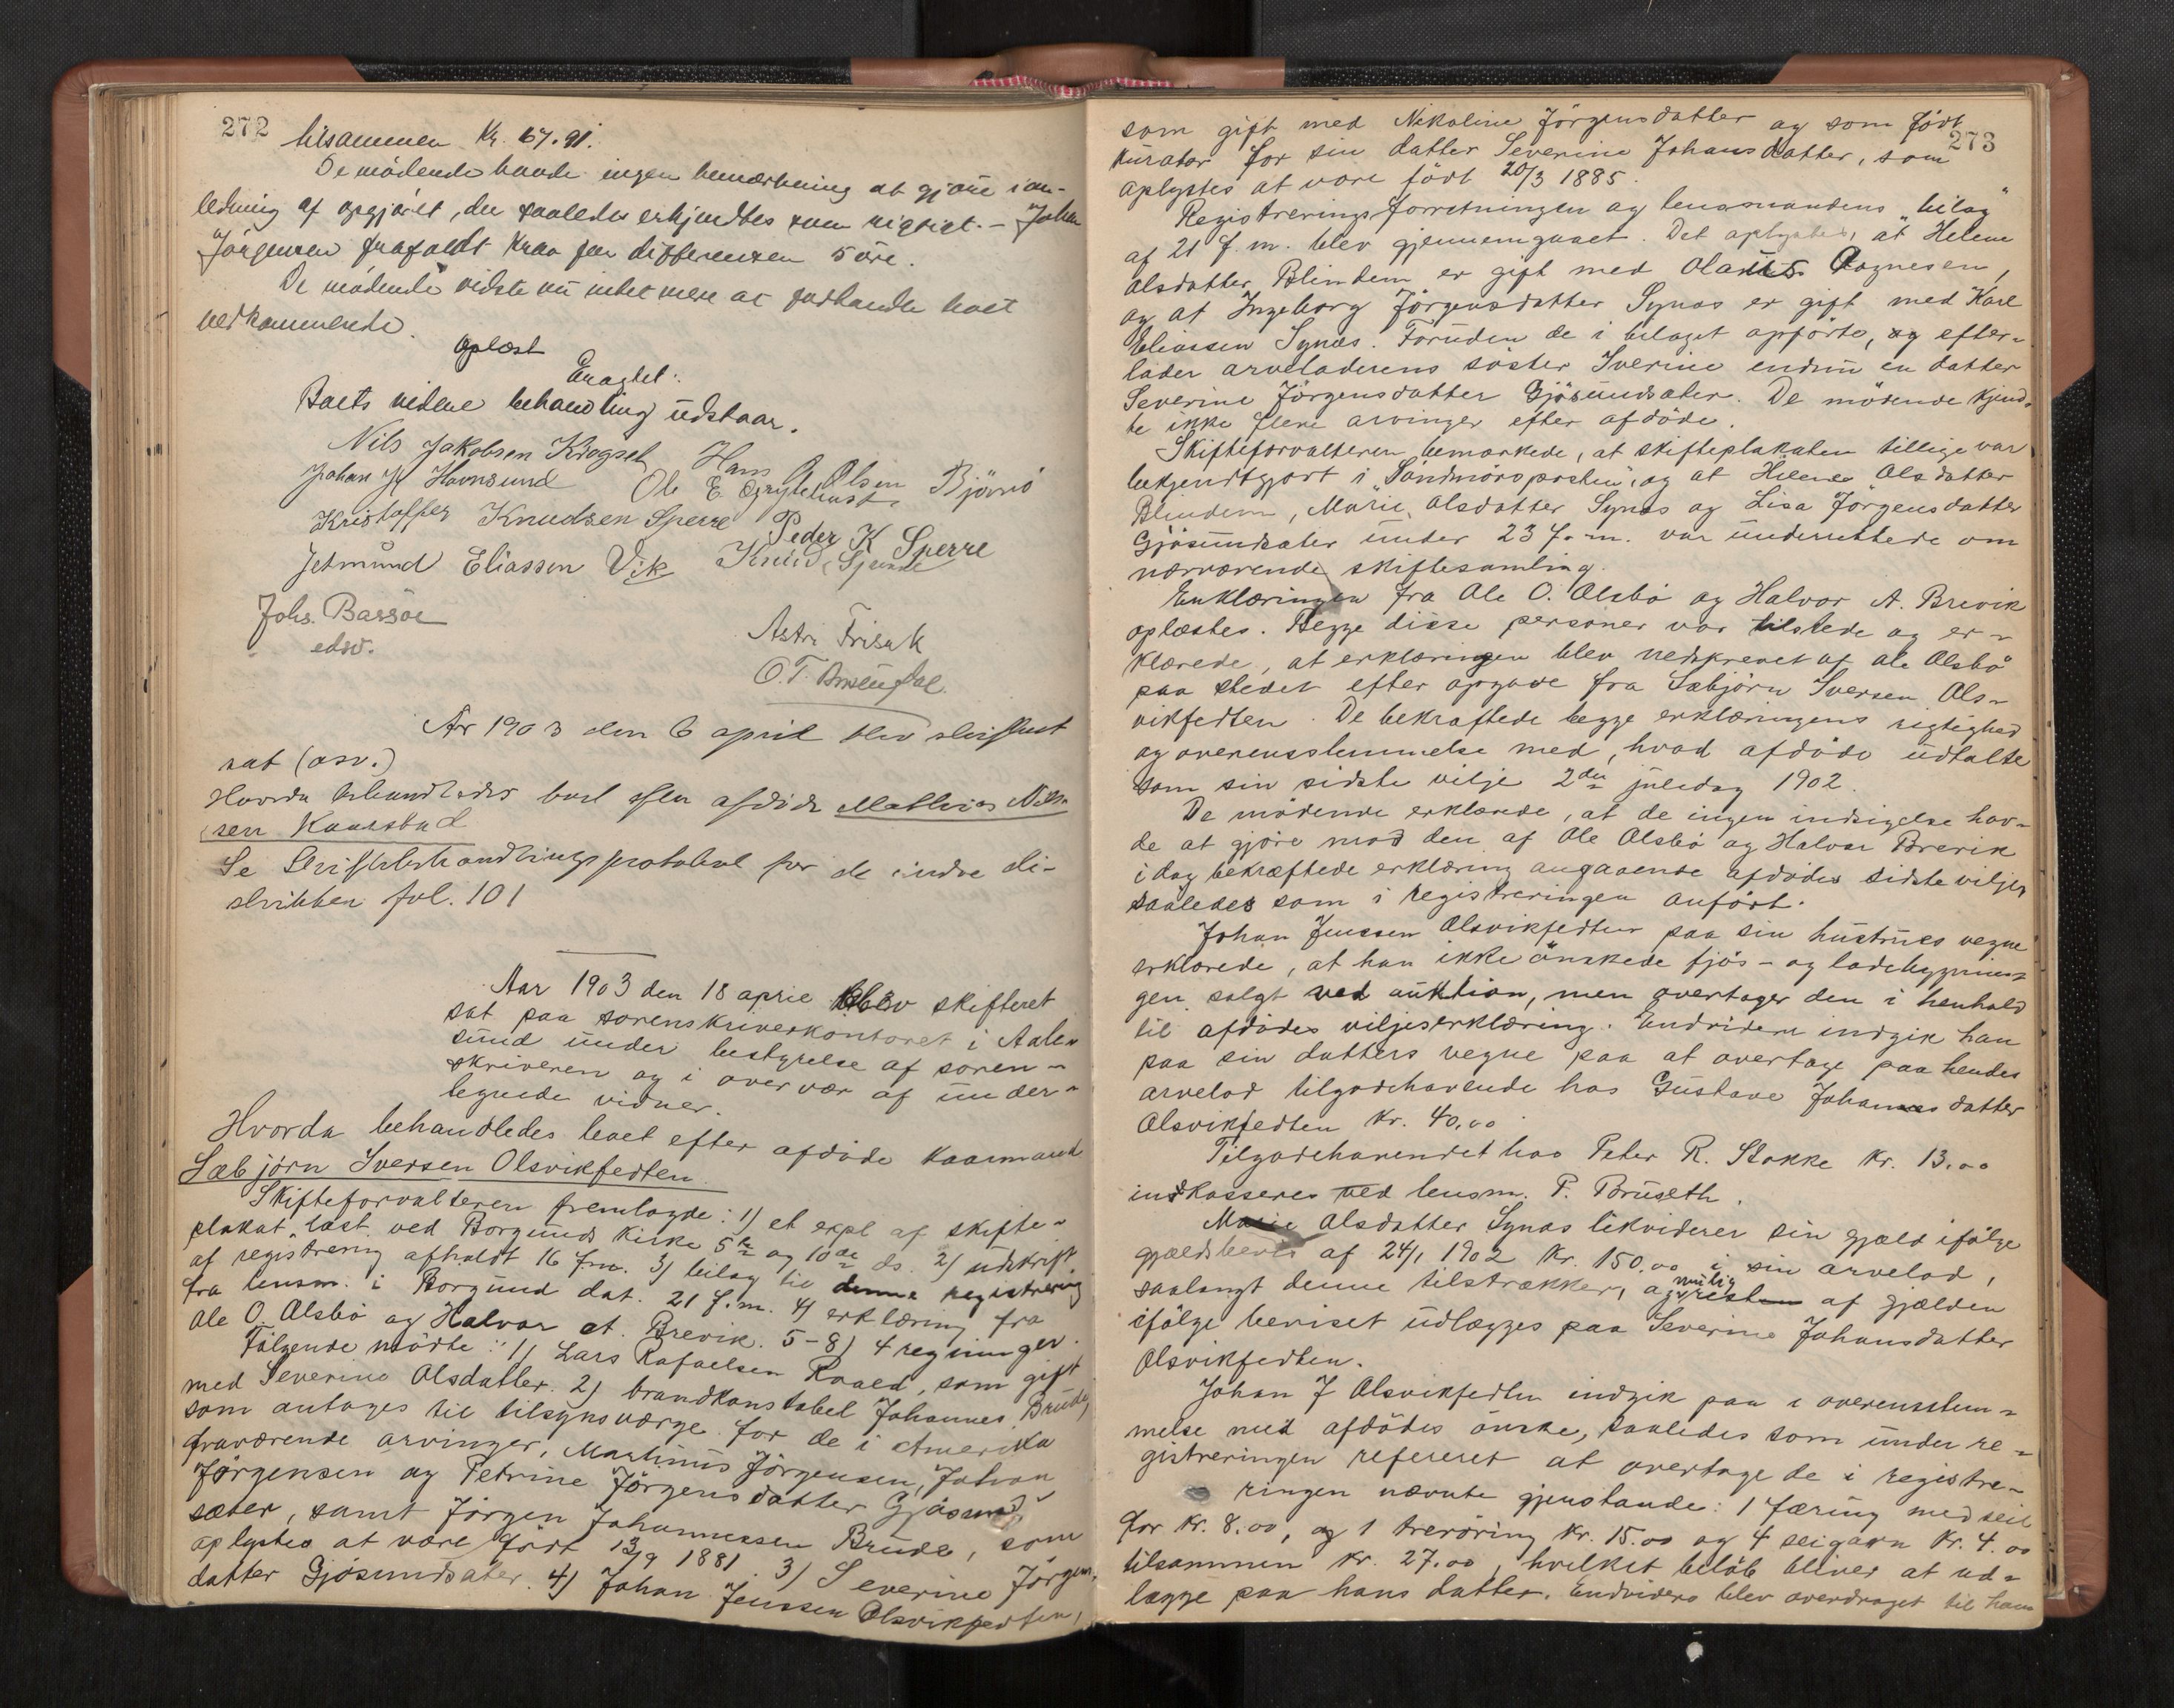 272
tilsammen Kr. 67.91.
De mödende havde ingen bemærkning at gjöre i an-
ledning af opgjöret, der saaledes erkjendtes som rigtigt. - Johan
Jörgensen frafaldt krav paa differensen 5 öre.
De mödende vidste nu intet mere at forhandle hvert
vedkommende.
Oplæst
Eragtet:
Boets videre behandling udstaar.
Nils Jakobsen Krogset Hans G Olsen Björnö
Johan H Havnsund Ole E Grytehust
Kristoffer Knudsen Sperre Peder K Sperre
Jetmund Eliassen Vik Knud Sperre
Johs. Bassöe
edsv.
Astri Frisak
O.T.
Aar 1903 den 6 april blev skifteret
sat (osv.)
Hvorda behandledes boet efter afdöde Mathias Nils-
sen Kaarstad
Se Skiftebehandlingsprotokol for de indre di-
strikter fol. 101
Aar 1903 den 18 april blev skifteret
sat paa sorenskriverkontoret i Aale-
sund under bestyrelse af soren-
skriveren og i overvær af under-
tegnede vidner.
Hvorda behandledes boet efter afdöde kaarmand
Sæbjörn Iversen Olsvikfedten.
Skifteforvalteren fremlagde: 1) et expl af skifte-
plakat læst ved Borgunds Kirke 5te og 10de ds. 2) udskrift
af registrering afholdt 16 f.m. 3) bilag til denne registrering
fra lensm. i Borgund dat. 21 f.m. 4) erklæring fra
Ole O. Alsbö og Halvor A. Brevik. 5-8) 4 regninger.
Fölgende mödte: 1) Lars Rafaelsen Roald, som gift
med Severine Olsdatter. 2) brandkonstabel Johannes Brude,
som antages til tilsynsværge for de i Amerika
fraværende arvinger, Martinus Jörgensen, Johan
Jörgensen og Petrine Jörgensdatter Gjösund-
sæter, samt Jörgen Johannessen Brude, som
oplystes at være född 13/9 1881. 3) Severine Jörgens-
datter Gjösundsæter. 4) Johan Jenssen Olsvikfedten,
273
som gift med Nikoline Jörgensdatter og som född
kurator for sin datter Severine Johansdatter, som
oplystes at være född 20/3 1885.
Registreringsforretningen og lensmandens "bilag"
af 21 f.m. blev gjennemgaaet. Det oplystes, at Helene
Olsdatter Blindem er gift med Olaus Rognesen,
og at Ingeborg Jörgensdatter Synes er gift med Karl
Eliassen Synes. Foruden de i bilaget opförte, og efter-
lader arveladerens söster Iverine endnu en datter
Severine Jörgensdatter Gjösundsæter. De mödende kjend-
te ikke flere arvinger efter afdöde.
Skifteforvalteren bemærkede, at skifteplakaten tillige var
bekjendtgjort i "Söndmörsposten", og at Helene Olsdatter
Blindem, Marie Olsdatter Synes og Lisa Jörgensdatter
Gjösundsæter under 23 f.m. var underrettede om
nærværende skiftesamling.
Erklæringen fra Ole O. Alsbö og Halvor A. Brevik
oplæstes. Begge disse personer var tilstede og er-
klærede, at erklæringen blev nedskrevet af Ole Alsbö
paa stedet efter opgave fra Sæbjörn Iversen Ols-
vikfedten. De bekræftede begge erklæringens rigtighed
og overensstemmelse med, hvad afdöde udtalte
som sin sidste vilje 2den juledag 1902.
De mödende erklærede, at de ingen indsigelse hav-
de at gjöre mod den af Ole Alsbö og Halvor Brevik
i dag bekræftede erklæring angaaende afdödes sidste vilje,
saaledes som i registreringen anfört.
Johan Jenssen Olsvikfedten paa sin hustrues vegne
erklærede, at han ikke önskede fjös- og ladebygnin-
gen solgt ved auktion, men overtager den i henhold
til afdödes viljeserklæring. Endvidere indgik han
paa sin datters vegne paa at overtage paa hendes
arvelod tilgodehavende hos Gustave Johannesdatter
Olsvikfedten Kr. 40,00
Tilgodehavendet hos Peter R. Slakke Kr. 13.00
indkasseres ved lensm. P. Bruseth.
Marie Olsdatter Synes likviderer sin gjæld ifölge
gjældsbevis af 24/1 1902 Kr. 150.00 i sin arvelod,
saalangt denne tilstrækker, og mulig rest af gjælden
ifölge beviset udlægges paa Severine Johansdatter
Olsvikfedten.
Johan J Olsvikfedten indgik paa i overensstem-
melse med afdödes önske, saaledes som under re-
gistreringen refereret at overtage de i registre-
ringen nævnte gjenstande: 1 færing med seil
for Kr. 8.00, og 1 treröring Kr. 15.00 og 4 seigarn Kr. 4.00
tilsammen Kr. 27.00, hvilket belöb bliver at ud-
lægge paa hans datter. Endvidere blev overdraget til ham